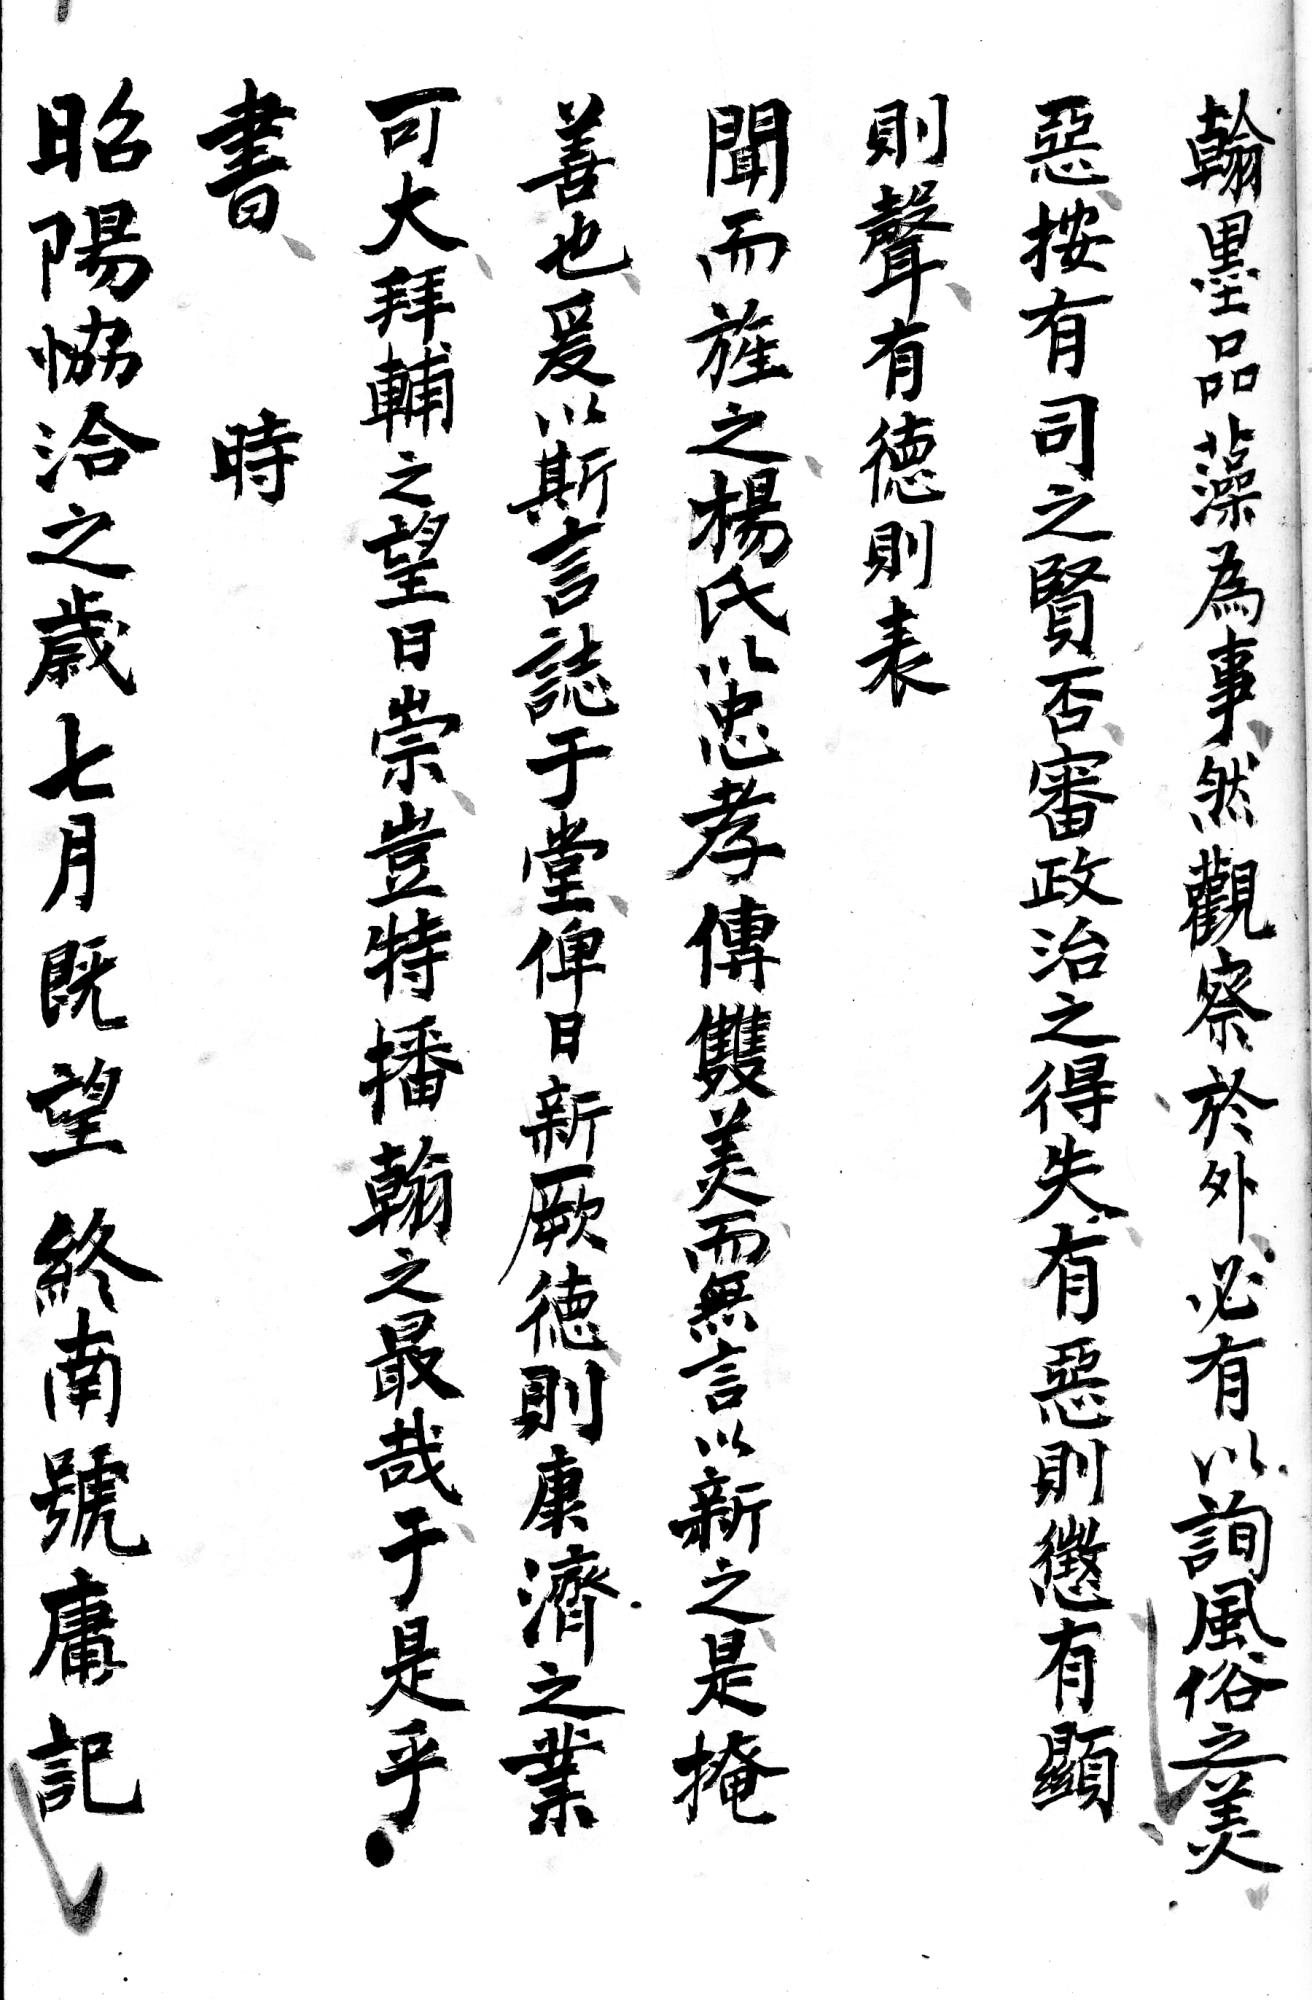 翰墨品藻為事然觀察於外必有以詢風俗之美
惡按有司之賢否審政治之得失有惡則懲有顯
則聲有德則表
聞而旌之楊氏以忠孝傳雙美而無言以新之是掩
善也爰以斯言誌于堂俾日新厥德則康濟之業
可大拜輔之望日崇豈特播翰之最哉于是乎
書 時
昭陽協洽之歲七月既望 終南號庸記